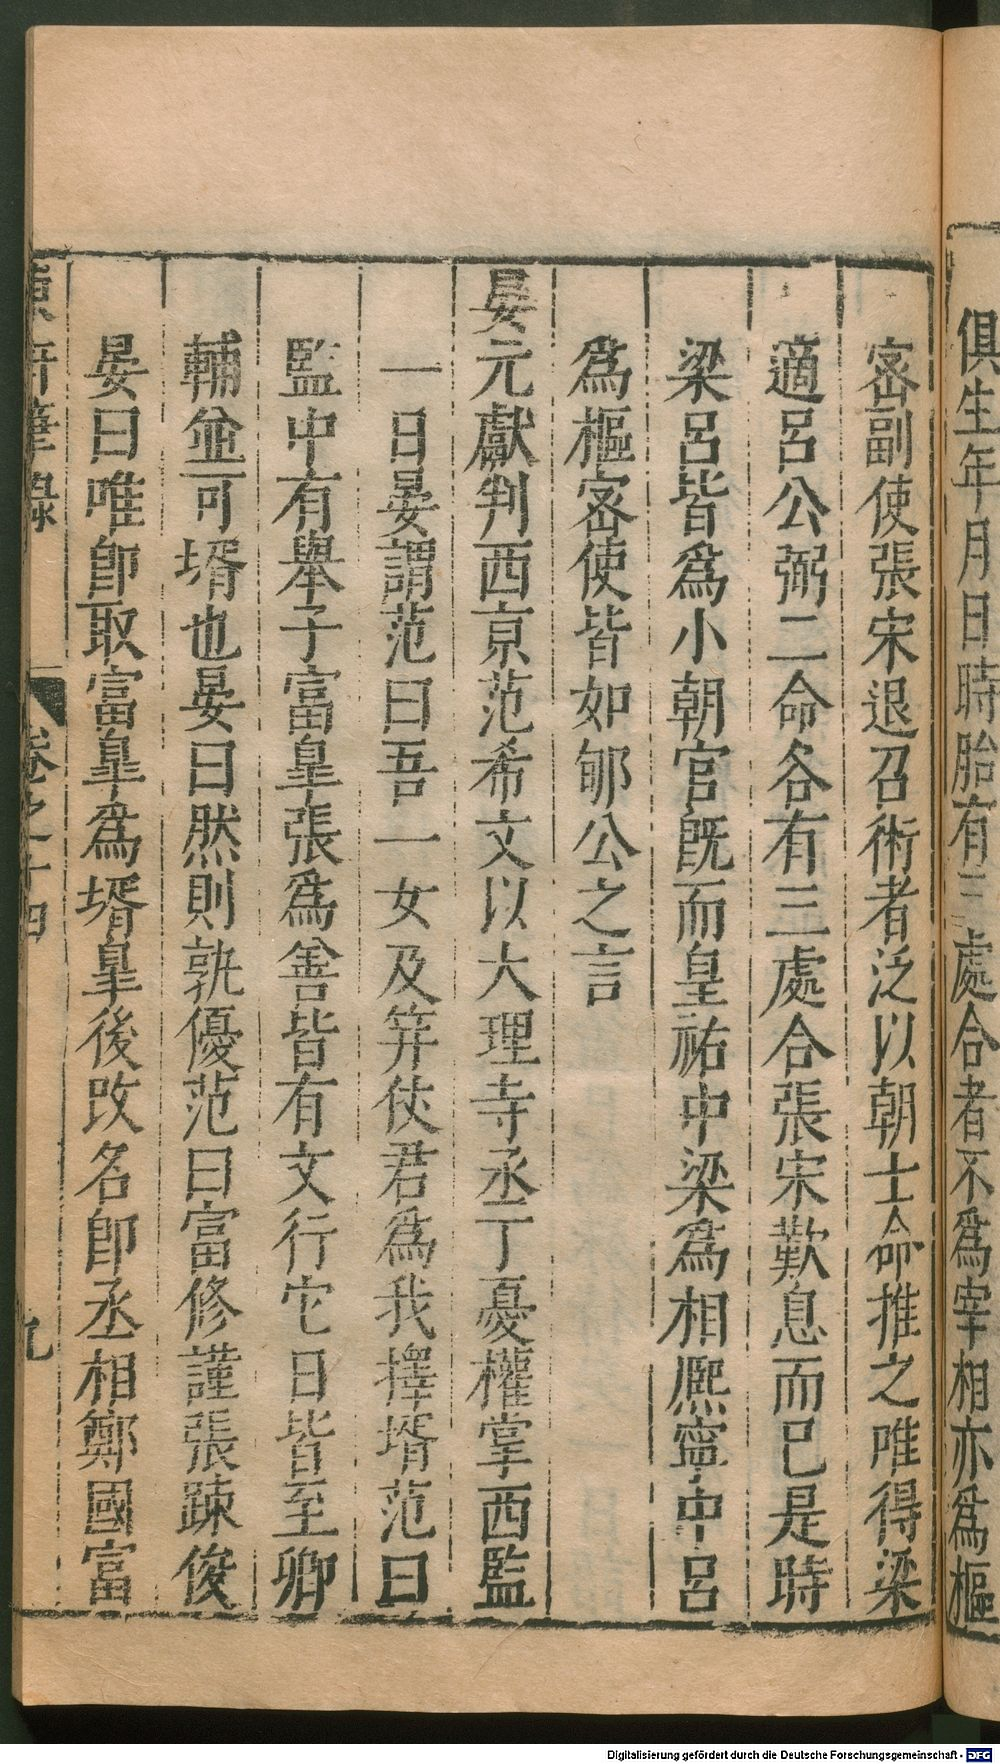 俱生年月日時胎有三處合者不爲宰相亦爲樞
密副使張宋退召術者泛以朝士命推之唯得梁
適呂公弼二命各有三處合張宋歎息而已是時
梁呂皆爲小朝官旣而皇祐中梁爲相熈寧中呂
爲樞密使皆如郇公之言
晏元獻判西京范希文以大理寺丞丁憂權掌西監
一日晏謂范曰吾一女及笄仗君爲我擇壻范曰
監中有舉子富皐張爲善皆有文行它日皆至卿
輔並可壻也晏曰然則孰優范曰富修謹張踈俊
晏曰唯卽取富皐爲壻皐後改名卽丞相鄭國富
東軒筆錄
卷之十四
九
Digitalisierung gefördert durch die Deutsche Forschungsgemeinschaft - DFG